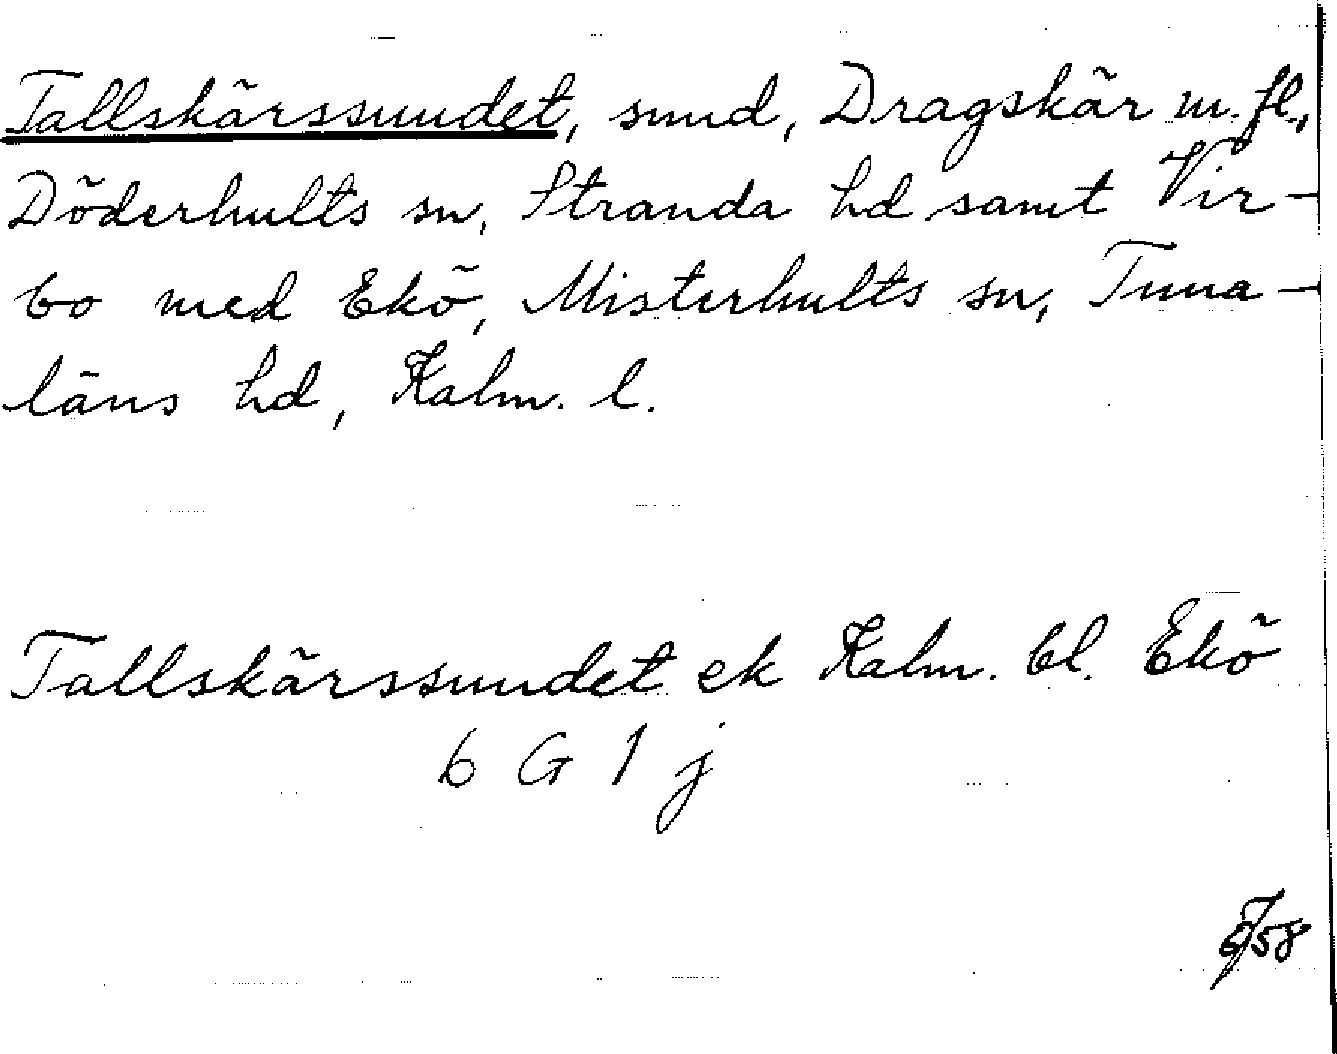 Tallskärssundet, sund, Dragskär m. fl.,
Döderhults sn, Stranda hd samt Vir-
bo med Ekö, Misterhults sn, Tuna-
läns hd, Kalm. l.
Tallskärssundet ek Kalm. bl. Ekö
6 G 1 j
58